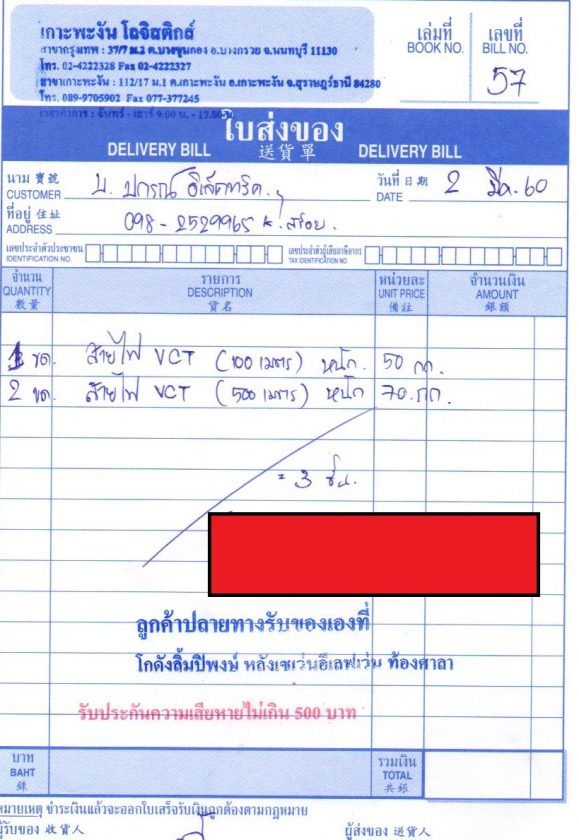 เกาะพะงัน โลจิสติกส์
สาขากรุงเทพ : 37/7 ม.2 ต.บางขุนกอง อ.บางกรวย จ.นนทบุรี 11130
โทร. 02-4222328 Fax 02-4222327
สาขาเกาะพะงัน : 112/17 ม.1 ต.เกาะพะงัน อ.เกาะพะงัน จ.สุราษฎร์ธานี 84280
โทร. 089-9705902 Fax 077-377245
เวลาทำการ : จันทร์ - เสาร์ 9.00 น. - 17.00 น.
เล่มที่ เลขที่
BOOK NO. BILL NO.
57
ใบส่งของ
DELIVERY BILL 送貨單 DELIVERY BILL
นาม 寶號 วันที่ 日期
CUSTOMER บ. ปกรณ์ อิเล็คทริค DATE 2 มีค. 60
ที่อยู่ 住址
ADDRESS 098-2529965 K. สร้อย.
เลขประจำตัวประชาชน เลขประจำตัวผู้เสียภาษีอากร
IDENTIFICATION NO. TAX IDENTIFICATION NO.
จำนวน รายการ หน่วยละ จำนวนเงิน
QUANTITY DESCRIPTION UNIT PRICE AMOUNT
數量 貨名 備註 銀額
1 ขด. สายไฟ VCT (100 เมตร) หนัก. 50 กก.
2 ขด. สายไฟ VCT (500 เมตร) หนัก 70.กก.
= 3 ชิ้น.
ลูกค้าปลายทางรับของเองที่
โกดังลิ้มปิพงษ์ หลังเซเว่นอีเลฟเว่น ท้องศาลา
รับประกันความเสียหายไม่เกิน 500 บาท
บาท รวมเงิน
BAHT TOTAL
銖 共銀
หมายเหตุ ชำระเงินแล้วจะออกใบเสร็จรับเงินถูกต้องตามกฎหมาย
ผู้รับของ 收貨人 ผู้ส่งของ 送貨人